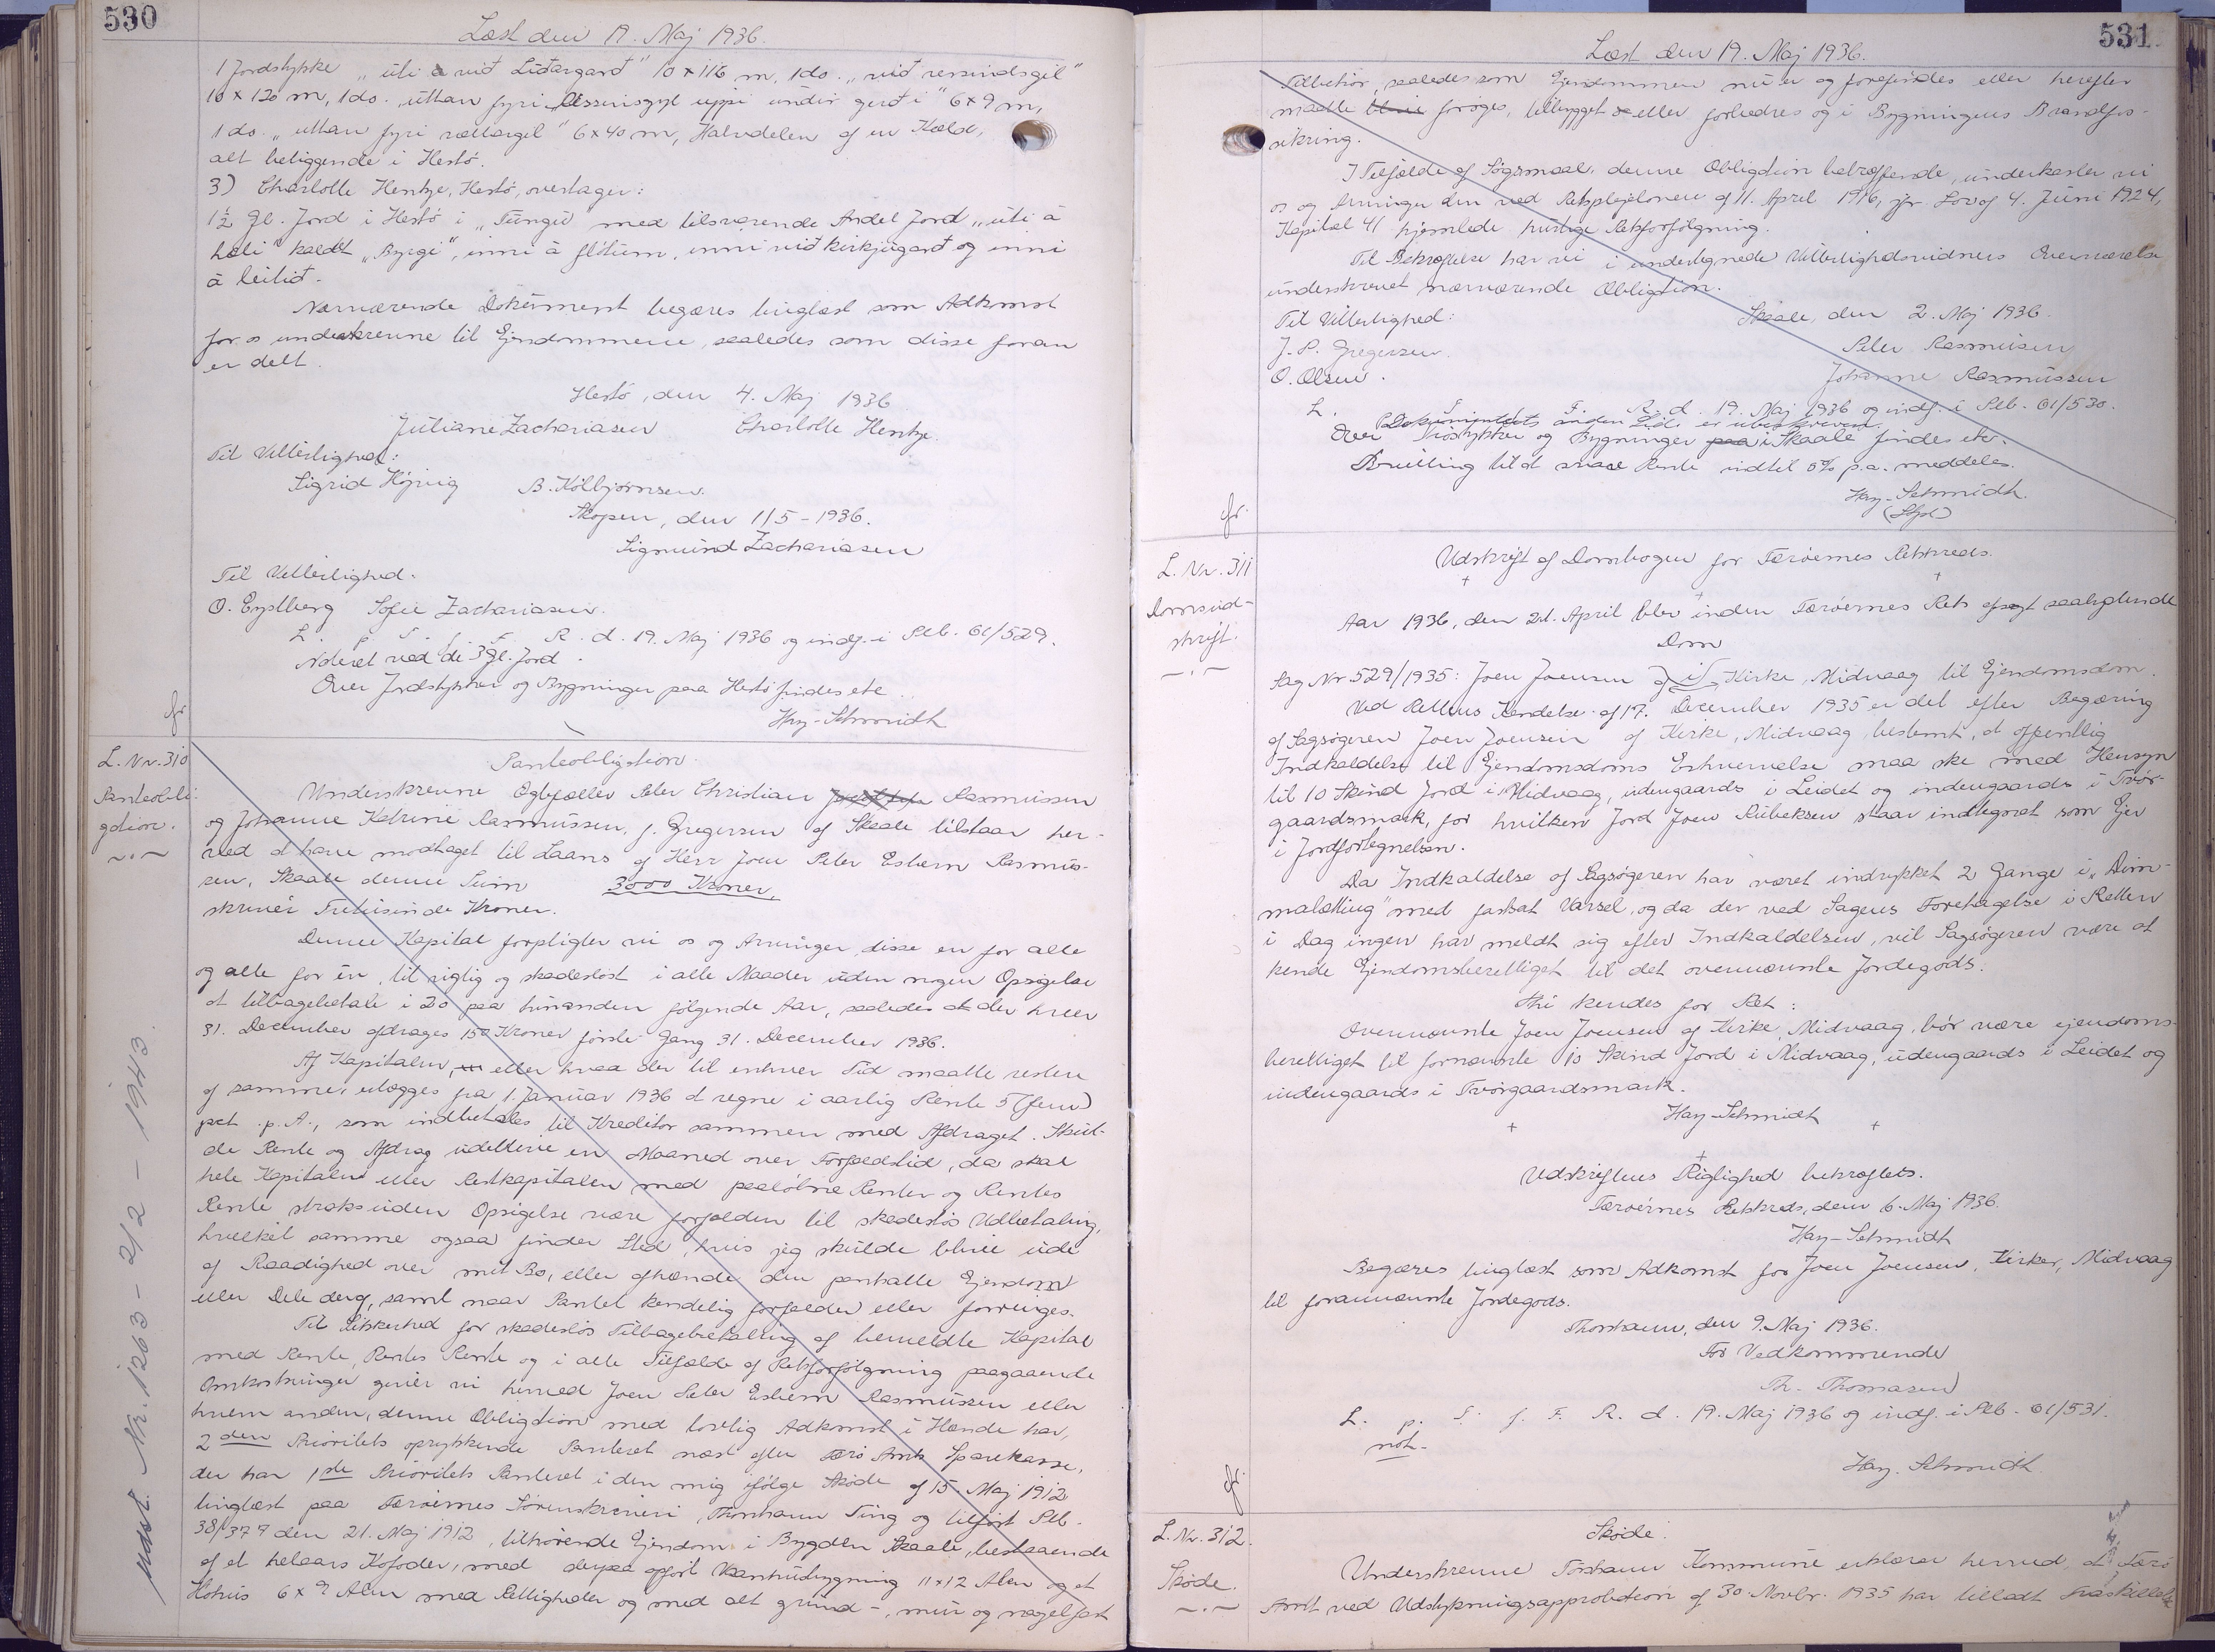 530
Læst den 19. Maj 1936.
1 Jordstykke „úti á við Liðargarð" 10 x 116 m, 1 do. „við
10 x 120 m, 1 do. úttan fyri uppi undir gerði" 6 x 9 m,
1 do. „uttan fyri 6 x 40 m, Halvdelen af en Kæld,
alt beliggende i Hestö.
3) Charlotte Hentze, Hestö, overtager:
1½ Gl. Jord i Hestö i „Túngu" med tilsvarende Andel Jord „úti á
kaldt „Byrgi", inni á flötum, inni við kirkjugarð og inni
á leitið.
Nærværende Dokument begæres tinglæst som Adkomst
for os underskrevne til Ejendommene, saaledes som disse foran
er delt.
Hestö, den 4. Maj 1936
Juliane Zachariasen Charlotte Hentze.
Til Vitterlighed:
Sigrid Højvig B. Kolbjørnsen.
Skopen, den 1/5 - 1936.
Sigmund Zachariasen
Til Vitterlighed.
O. Eystberg Sofie Zachariasen.
L. p. T. f. F. R. d. 19. Maj 1936 og indf. i Plb. 61/529.
Noteret ved de 3 Gl. Jord.
Over Jordstykker og Bygninger paa Hestö findes etc.
Hay-Schmidt
L. Nr. 310
Panteobli-
gation.
Panteobligation
Underskrevne Ægtefæller Peter Christian Rasmussen
og Johanne Katrine Rasmussen, f. Gregersen af Skaale tilstaar her-
ved at have modtaget til Laans af Herr Joen Peter Esbern Rasmus-
sen, Skaale denne Sum 3000 Kroner,
skriver Tretusinde Kroner.
Denne Kapital forpligter vi os og Arvinger, disse en for alle
og alle for én, til rigtig og skadesløst i alle Maader uden nogen Opsigelse
at tilbagebetale i 20 paa hinanden følgende Aar, saaledes at der hver
31. December afdrages 150 Kroner første Gang 31. December 1936.
Af Kapitalen, eller hvad der til enhver Tid maatte restere
af samme, erlægges fra 1. Januar 1936 at regne i aarlig Rente 5 (fem)
pct. p. A., som indbetales til Kreditor sammen med Afdraget. Skul-
de Rente og Afdrag udeblive en Maaned over Forfaldstid, da skal
hele Kapitalen eller Restkapitalen med paaløbne Renter og Rentes
Rente straks uden Opsigelse være forfalden til skadesløs Udbetaling,
hvilket samme ogsaa finder Sted, hvis jeg skulde blive ude
af Raadighed over mit Bo, eller afhænde den pantsatte Ejendom
eller Dele deraf, samt naar Pantet kendelig forfalder eller forringes.
Til Sikkerhed for skadesløs Tilbagebetaling af bemeldte Kapital
med Rente, Rentes Rente og i alle Tilfælde af Retsforfølgning paagaaende
Omkostninger giver vi herved Joen Peter Esbern Rasmussen eller
hvem anden, denne Obligation med lovlig Adkomst i Hænde har,
2den Prioritets oprykkende Panteret næst efter Færø Amts Sparekasse,
der har 1ste Prioritets Panteret i den mig ifølge Skøde af 15. Maj 1912
tinglæst paa Færøernes Sorenskriveri, Thorshavn Ting og tilført Plb.
38/377 den 21. Maj 1912, tilhørende Ejendom i Bygden Skaale, bestaaende
af et helaars Kofoder, med derpaa opført Vaanhusbygning 11 x 12 Alen og et
Hohus 6 x 9 Alen med Rettigheder og med alt grund-, mur og nagelfast
Udsl. Nr. 1263 - 2/2 - 1943.
531
Læst den 19. Maj 1936.
Tilbehør, saaledes som Ejendommen nu er og forefindes eller herefter
maatte blive forøges, tilbygget eller forbedres og i Bygningens Brandfor-
sikring.
I Tilfælde af Søgsmaal, denne Obligation betræffende, underkaster vi
os og Arvinger den ved Retsplejeloven af 11. April 1916, jfr. Lov af 4. Juni 1924,
Kapitel 41 hjemlede hurtige Retsforfølgning.
Til Bekræftelse har vi i undertegnede Vitterlighedsvidners Overværelse
underskrevet nærværende Obligation.
Til Vitterlighed: Skaale, den 2. Maj 1936.
J. P. Gregersen. Peter Rasmussen
O. Olsen. Johanne Rasmussen
L. p. T. f. F. R. d. 19. Maj 1936 og indf. i Plb. 61/530.
Dokumentets anden Side er ubeskreven.
Over Jordstykker og Bygninger paa i Skaale findes etc.
Bevilling til at svare Rente indtil 5% p.a. meddeles.
Hay-Schmidt.
L. Nr. 311
Domsud-
skrift.
Udskrift af Dombogen for Færöernes Retskreds.
Aar 1936, den 21. April blev inden Færöernes Ret afsagt saalydende
Dom
Sag Nr. 529/1935: Joen Joensen af i Kirke, Midvaag til Ejendomsdom.
Ved Rettens Kendelse af 17. December 1935 er det efter Begæring
af Sagsøgeren Joen Joensen af Kirke, Midvaag, bestemt, at offentlig
Indkaldelse til Ejendomsdoms Erhvervelse maa ske med Hensyn
til 10 Skind Jord i Midvaag, udengaards i Leidet og indengaards i Tvør-
gaardsmark, for hvilken Jord Joen Rubeksen staar indtegnet som Ejer
i Jordfortegnelsen.
Da Indkaldelse af Sagsøgeren har været indrykket 2 Gange i „Dim-
malætting" med fastsat Varsel, og da der ved Sagens Foretagelse i Retten
i Dag ingen har meldt sig efter Indkaldelsen, vil Sagsøgeren være at
kende Ejendomsberettiget til det ovennævnte Jordegods.
Thi kendes for Ret:
Ovennævnte Joen Joensen af Kirke, Midvaag, bör være ejendoms-
berettiget til fornævnte 10 Skind Jord i Midvaag, udengaards i Leidet og
indengaards i Tvørgaardsmark.
Hay-Schmidt
Udskriftens Rigtighed bekræftes.
Færöernes Retskreds, den 6. Maj 1936.
Hay-Schmidt
Begæres tinglæst som Adkomst for Joen Joensen, Kirke, Midvaag
til forannævnte Jordegods.
Thorshavn, den 9. Maj 1936.
For Vedkommende
Th. Thomasen
L. p. T. f. F. R. d. 19. Maj 1936 og indf. i Plb. 61/531.
not.
Hay-Schmidt.
L. Nr. 312.
Skøde.
Skøde.
Underskrevne Torshavn Kommune erklærer herved, at Færø
Amt ved Udstykningsapprobation af 30. Novbr. 1935 har tilladt Fraskillelse